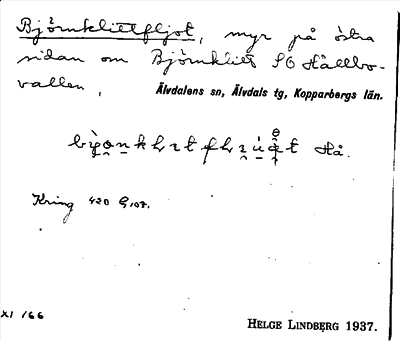 Björnklittfljot, myr på östra
sidan om Björnklitt SO Hållbo-
vallen, Älvdalens sn, Älvdals tg, Kopparbergs län.
Hå.
Kring 420 G,07.
XI /66
HELGE LINDBERG 1937.